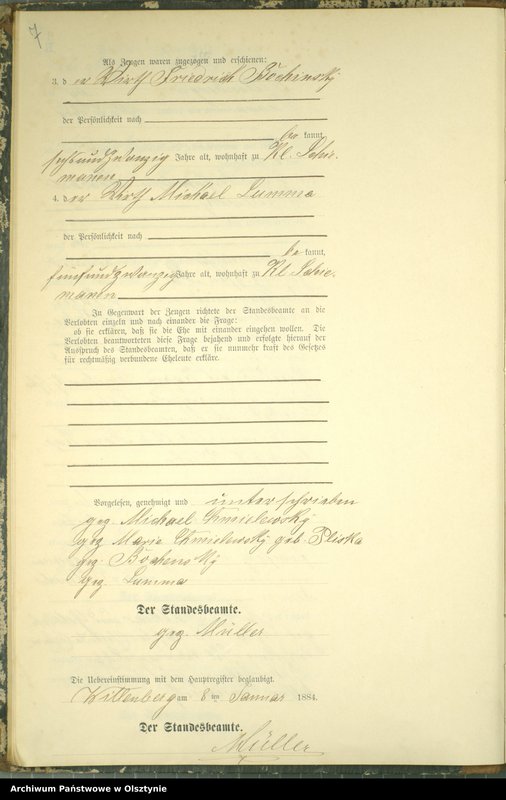 7
Als Zeugen waren zugezogen und erschienen:
3. d er Wirth Friedrich Bochensky
der Persönlichkeit nach
be kannt,
sechsundzwanzig Jahre alt, wohnhaft zu Kl. Schie-
manen
4. d er Wirth Michael Lumma
der Persönlichkeit nach
be kannt,
fünfundzwanzig Jahre alt, wohnhaft zu Kl. Schie-
manen
In Gegenwart der Zeugen richtete der Standesbeamte an die
Verlobten einzeln und nach einander die Frage:
ob sie erklären, daß sie die Ehe mit einander eingehen wollen. Die
Verlobten beantworteten diese Frage bejahend und erfolgte hierauf der
Ausspruch des Standesbeamten, daß er sie nunmehr kraft des Gesetzes
für rechtmäßig verbundene Eheleute erkläre.
Vorgelesen, genehmigt und unterschrieben
gez. Michael Chmielewsky
gez. Marie Chmielewsky geb. Pliska
gez. Bochensky
gez. Lumma
Der Standesbeamte.
gez. Müller
Die Uebereinstimmung mit dem Hauptregister beglaubigt.
Willenberg am 8 ten Januar 1884.
Der Standesbeamte.
Müller
Archiwum Państwowe w Olsztynie